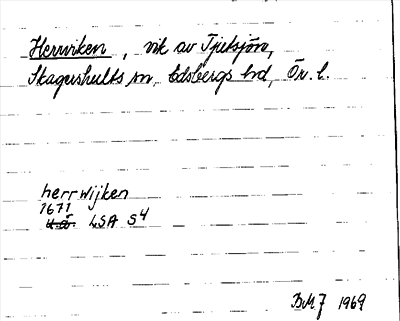 Herrviken, vik av Tjutsjön,
Skagershults sn, Edsbergs hd, Ör. l.
herrwijken
1671
u.å. LSA S4
BMJ 1969